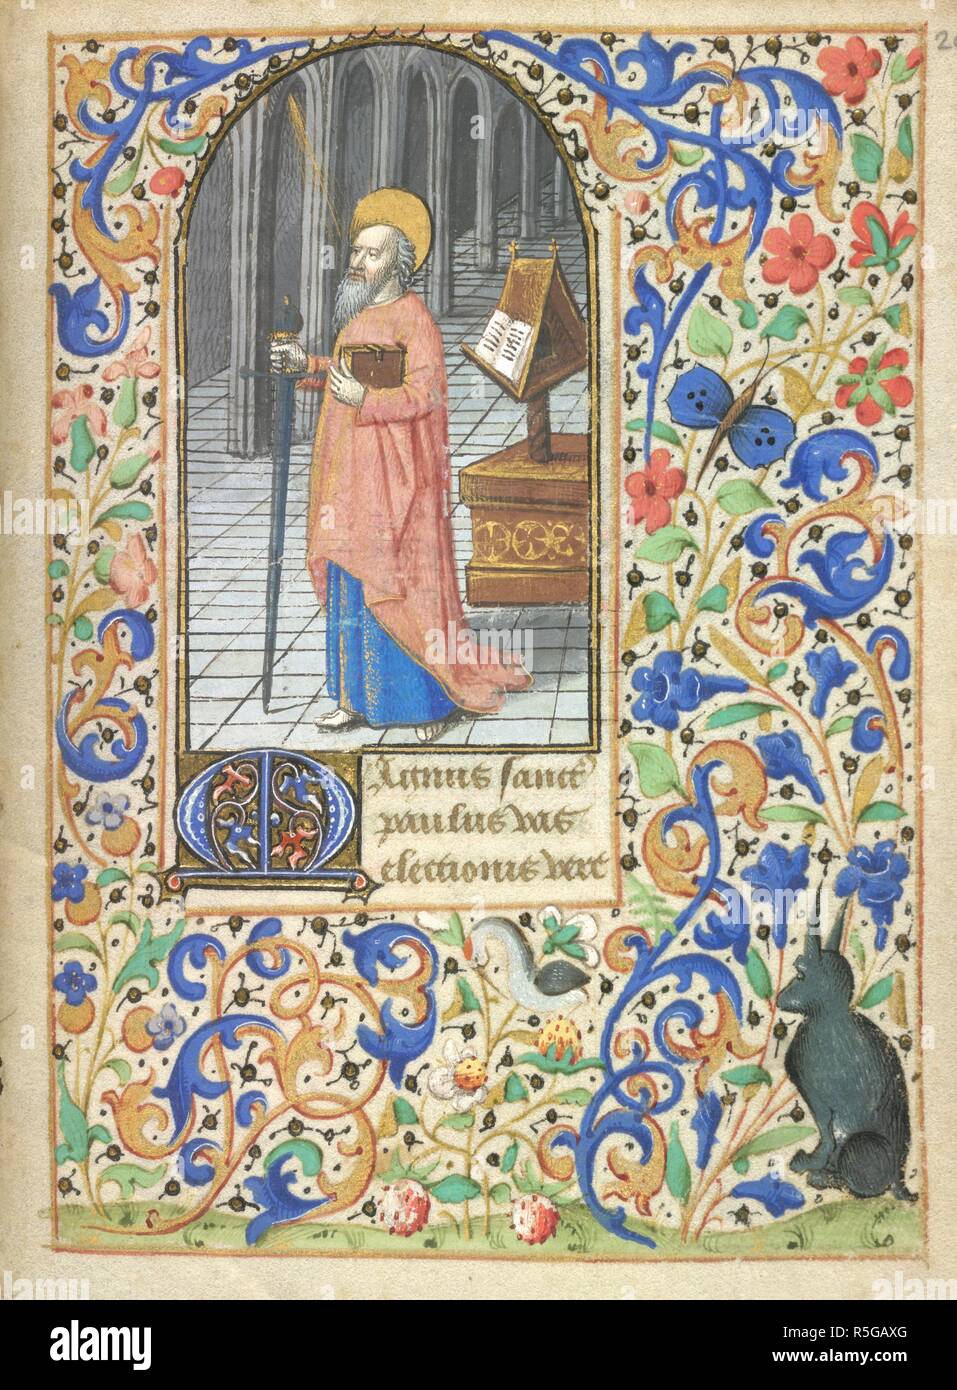 20
Magnus sanct
paulus vas
electionis vere
alamy
Image ID: R5GAXG
www.alamy.com